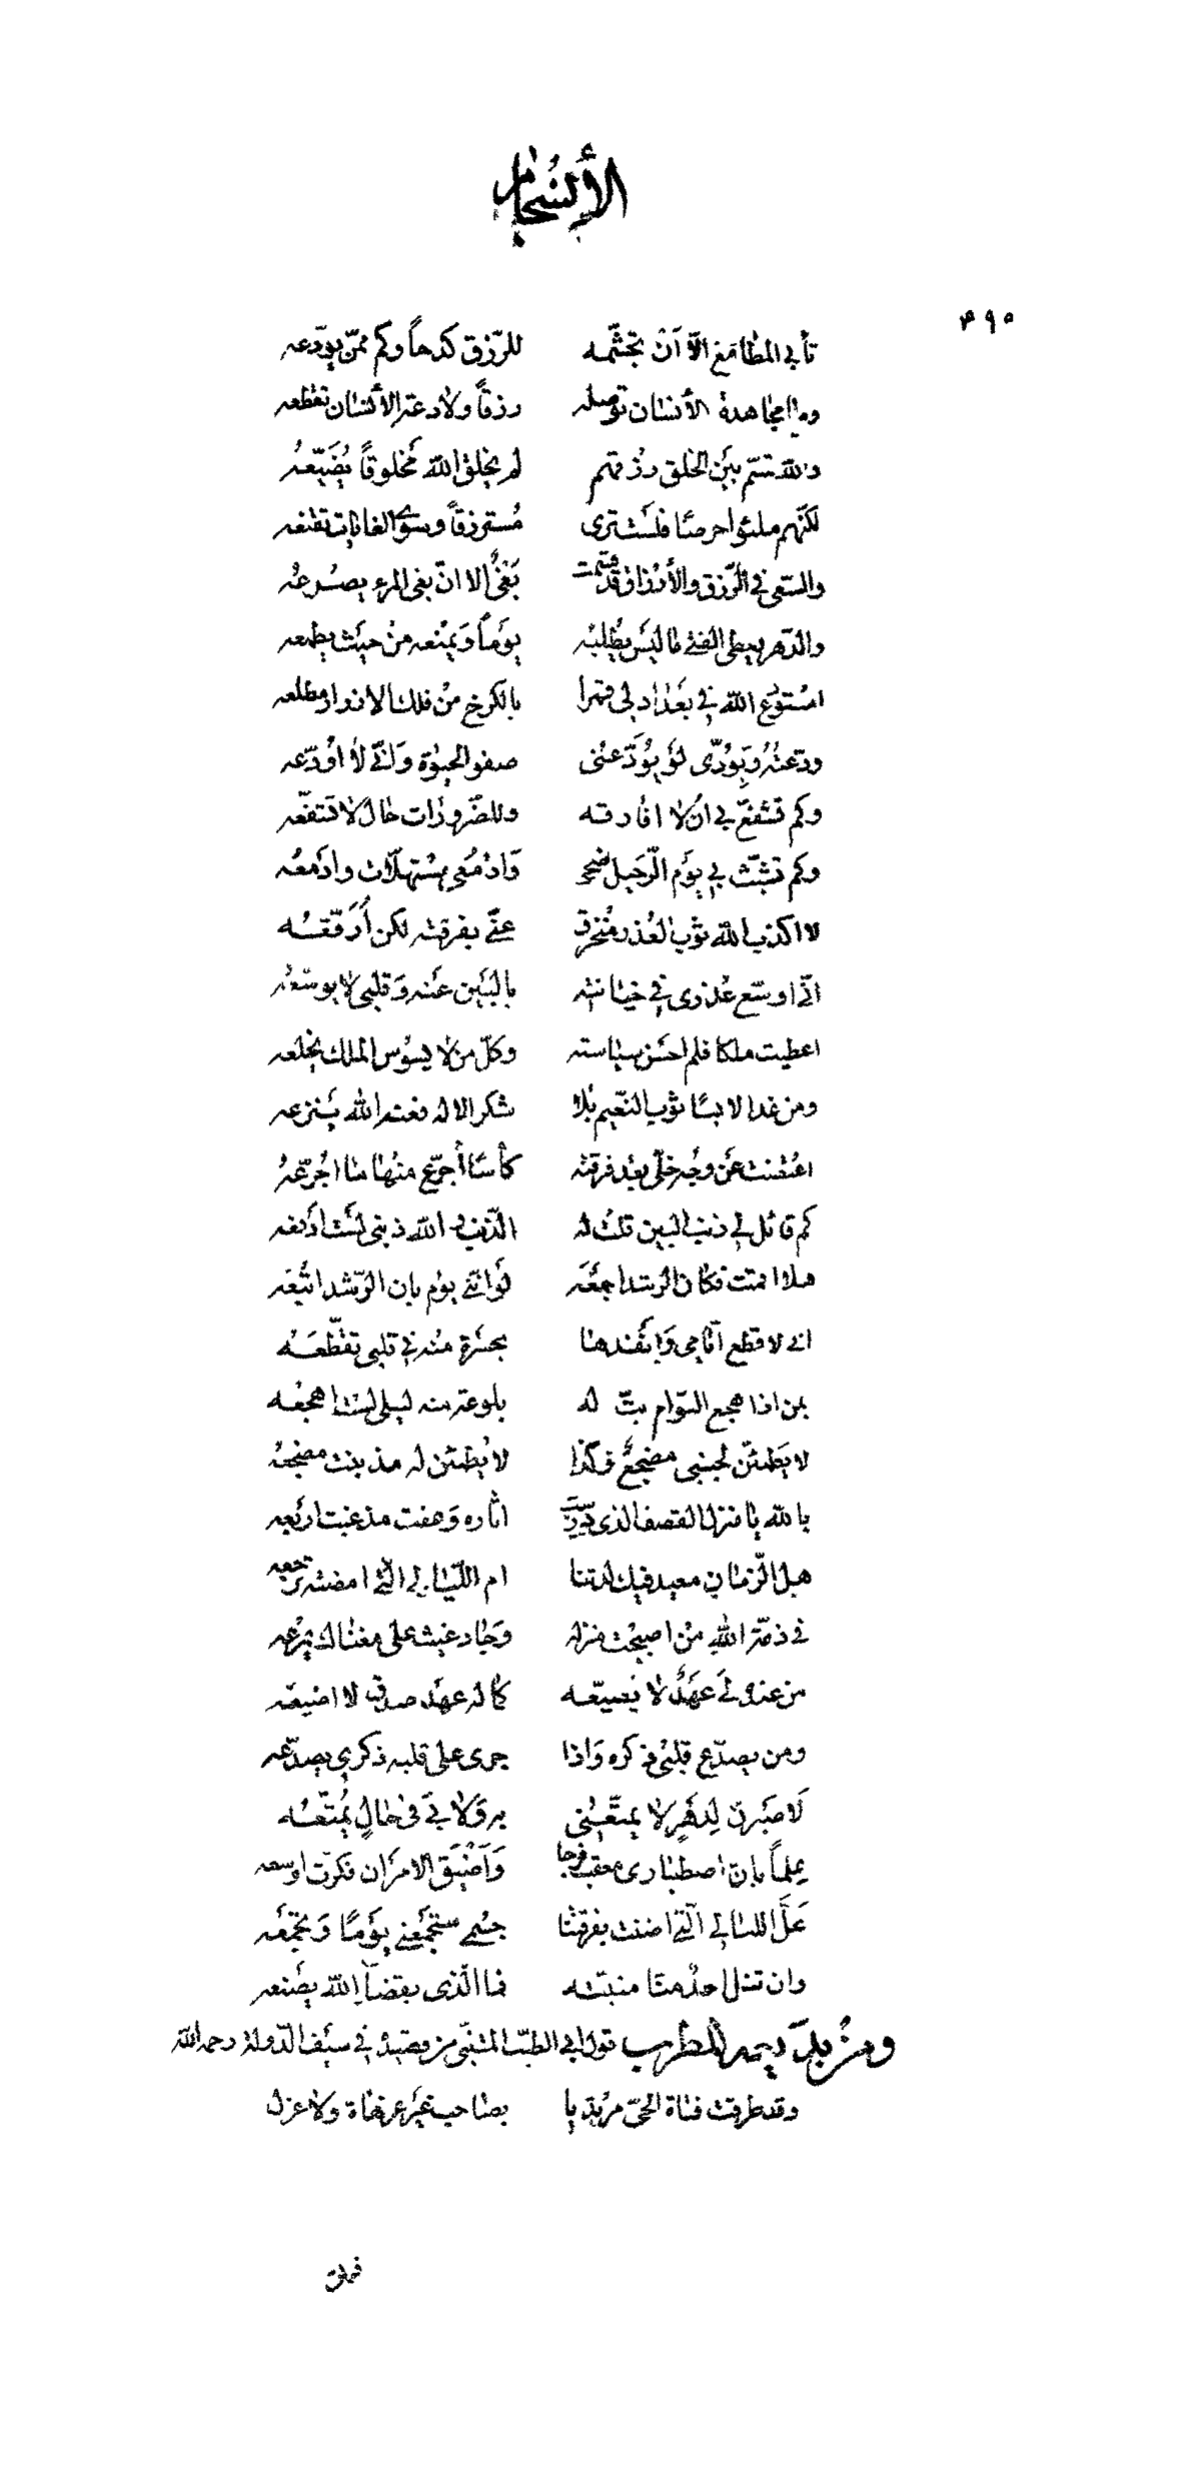 الأنسجام
٤٩٥
تأبى المطامع الّا اَنْ تجشّمه للرّزق كدحاً وكم ممّن يودّعه
وما مجاهدة الأنسان توصله رزقاً ولا دعة الأنسان تقطعه
والله قسّم بيَن الخلق رزقهم لم يخلق الله مَخلوقاً يُضَيّعهُ
لكنّهم ملئوا حرصًا فلسَت ترى مُسترزقاً وسوَى الغايات تقنعه
والسّعى فى الرّزق والأرزاق قد قسّمت بَغْىٌ الا انّ بغى المرء يصرعه
والدّهر يعطى الفتى ما ليَس يطلبه يَوماً وَيمنْعه منْ حيَث يطمعه
استودع الله فى بَغداد لى قمرا بالكرخ منْ فلك الازرار مطلعه
ودّعتهُ وَبِوُدّى لوَ يُوَدّعنى صفو الحيوة وَانّى لا اُودّعه
وكم تشفّع بى ان لا افارقه وللضّرورات حال لا تشفّعه
وكم تشبّث بى يوَم الرّحيل ضحى وَادْمُعى مستهلّات وادَمعُه
لا اكذب الله ثوب العُذر مُنخرق عنّى بفرقته لكن أرَقّعُه
انّى اوسّع عُذرى فى خيانته بالبَين عَنه وَقلبى لا يوسّعُه
اعطيت ملكا فلم احسَن سياسته وكلّ من لا يسوُس الملك يخلعه
ومن غدا لابسًا ثوب النّعيم بلا شكر الاله فعنه الله ينَزعه
اعتضت عَن وجه خلّى بعَد فرقته كأسًا أجرّع منْها ما اُجرّعهُ
كم قائل لى ذنب البين قلت له الذّنب والله ذنبى لسَت ادَفعه
هلا اقمت فكان الرشد اجمعَه لوَ انّنى يوم بان الرّشد اتّبعه
انى لا قطع ايّامى وَانفَدها بحسَرة منه فى قلبى تقطّعَهُ
بمن اذا هجع النوّام بتّ له بلوعة منه ليلى لست اهجعه
لا يَطمئنّ لجنبى مضجعٌ وكذا لا يُطمئن له مذ بنت مضجعهُ
بالله يا منزل القصف الذى درست اثاره وَعفت مذ غبت اربُعه
هل الزّمان معيد فيك لذتنا ام اللّيالى الّتى امضته ترجعه
فى ذمّة الله منْ اصبحْت منزله وَجاد غيث على مغناك يمرعه
من عنده لىَ عهَدٌ لا يضيّعه كما له عهَد صدق لا اضيعَه
ومن يصدّع قلبْى ذكره وَاذا جرى على قلبه ذكرى يصدّعه
لَاصبَرن لِدهَرٍ لا يمتّعَنى به وَلا بىَ فى حالٍ يُمتّعُه
علماً بانّ اصطبارى معقب فرجا وَاَضَيَق الامرَان فكرت اوسعه
عَلَّ اللّيالى الّتى اضنت بفرقتنا جسْمى ستجمَعنى يوَمًا وَتجمَعَه
وان تنل احدًا منا منيّته فما الّذى بقضآءِ الله يصَنعه
ومنْ بديَعه المطرب قول ابى الطيّب المتنبّى من قصيدة فى سيَف الدّولة رحمه الله
وقد طرقت فتاة الحىّ مرُتديا بصاحب غيَر عزهاة ولا غزل
فبات